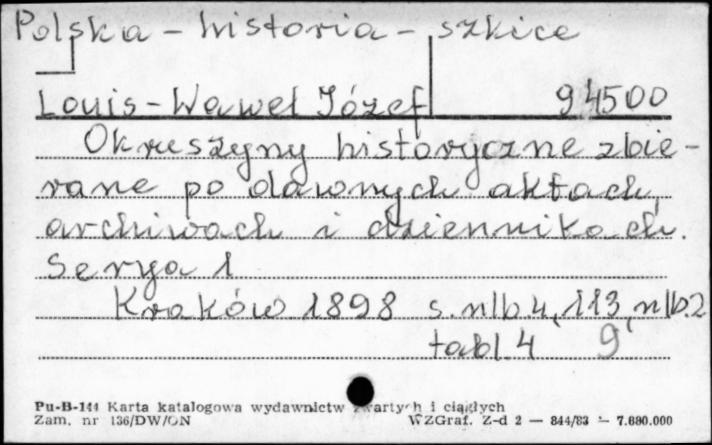 Polska - historia - szkice
Louis-Wawel Józef 94500
Okruszyny historyczne zbie-
rane po dawnych aktach,
archiwach i dziennikach.
Serya 1
Kraków 1898 s. nlb. 4, 113, nlb. 2
tabl. 4 9
Pu-B-144 Karta katalogowa wydawnictw zwartych i ciągłych
Zam. nr 136/DW/ON WZGraf. Z-d 2 — 844/83 — 7.680.000